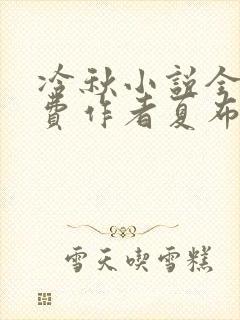 冷秋小说全
费作者夏布
雪天喫雪糕